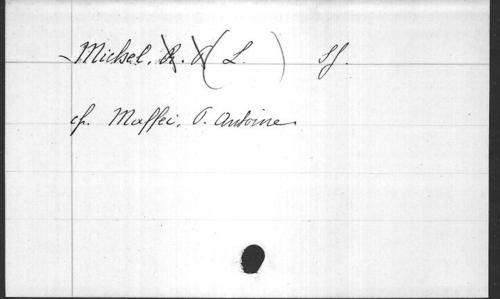 Michel, R. P. (L. ) SJ.
cfr. Maffei, P. Antoine